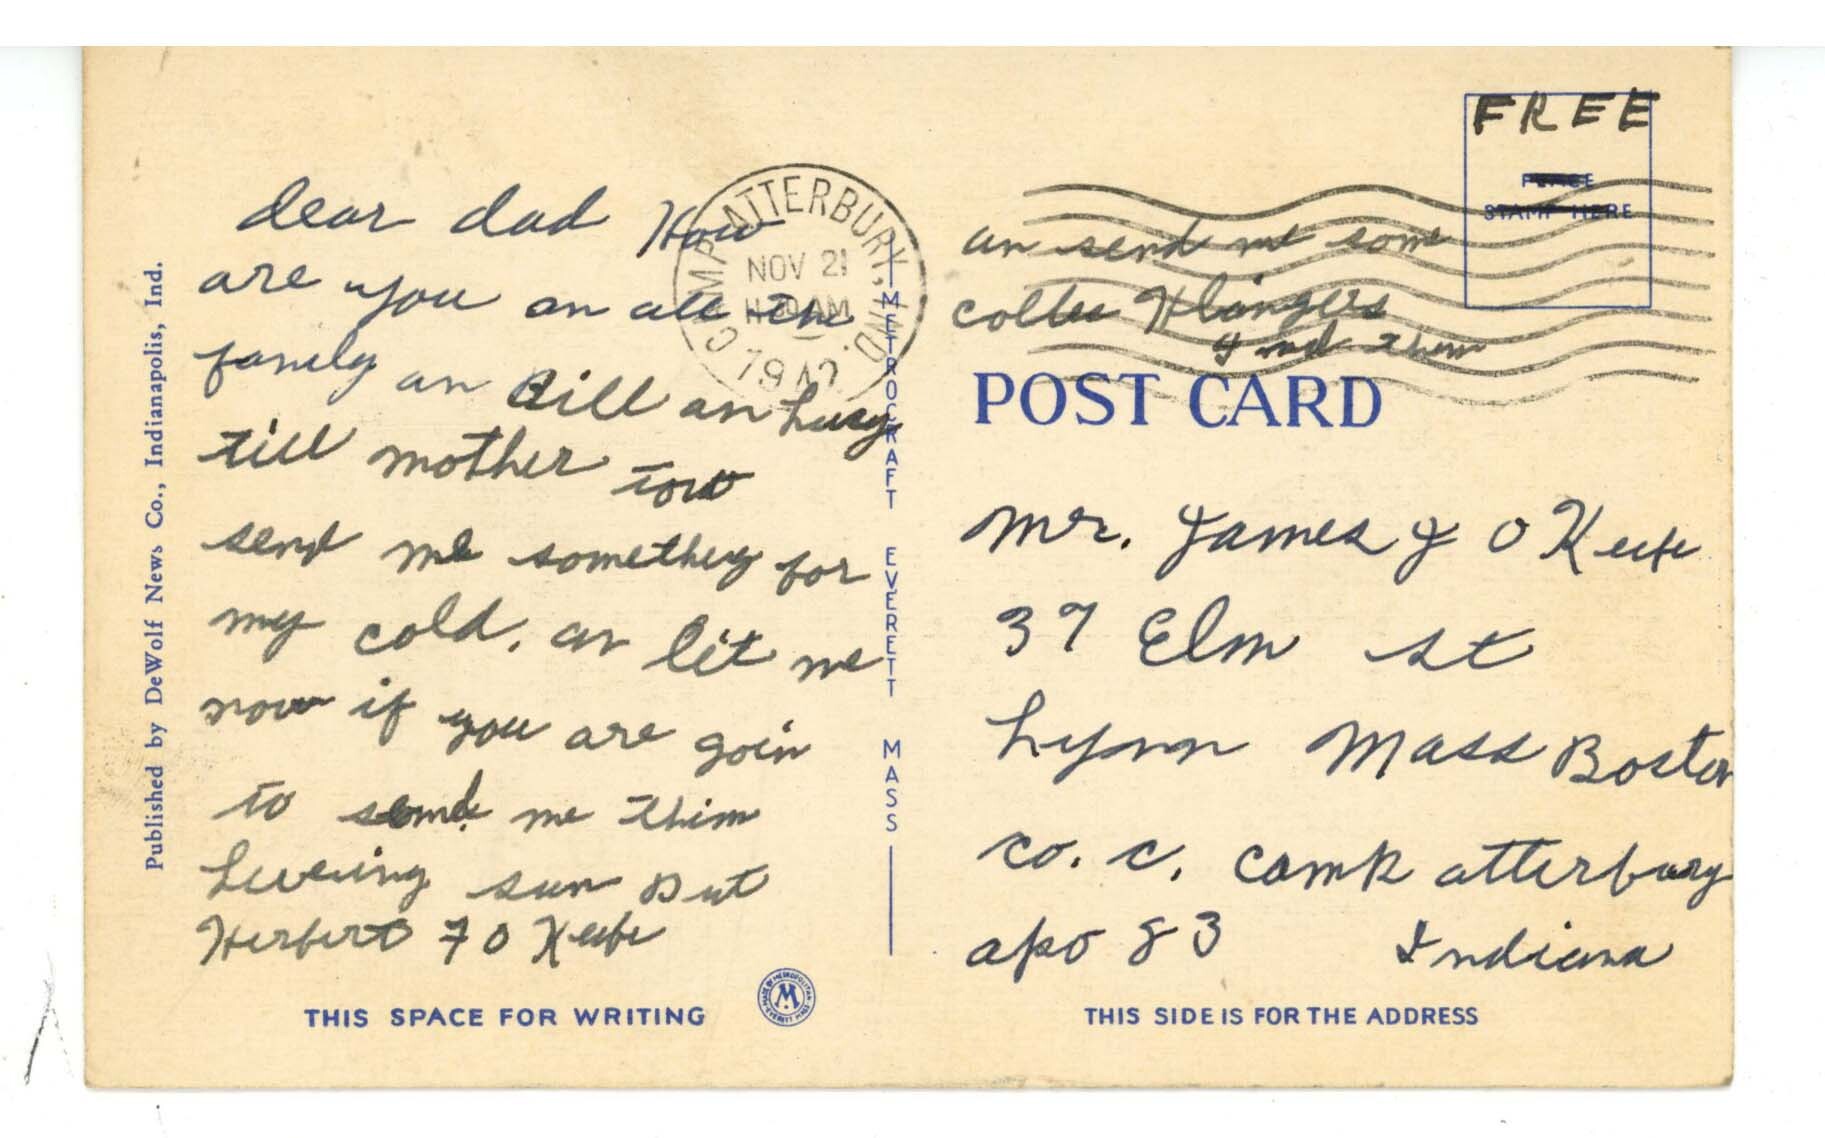 Published by DeWolf News Co., Indianapolis, Ind.
dear dad How
are you an all the
family an Bill an Lucy
till mother to
send me something for
my cold, an let me
now if you are goin
to send me them
Loveing sun But
Herbert F O Keefe
THIS SPACE FOR WRITING
METROCRAFT EVERETT MASS
MADE BY METROPOLITAN
M
EVERETT MASS
CAMP ATTERBURY, IND.
NOV 21
11:30 AM
1942
FREE
PLACE
STAMP HERE
an send me some
Hangers
I need them
POST CARD
Mr. James J O Keefe
37 Elm st
Lynn Mass Boston
co. c. camp atterbury
apo 83 Indiana
THIS SIDE IS FOR THE ADDRESS